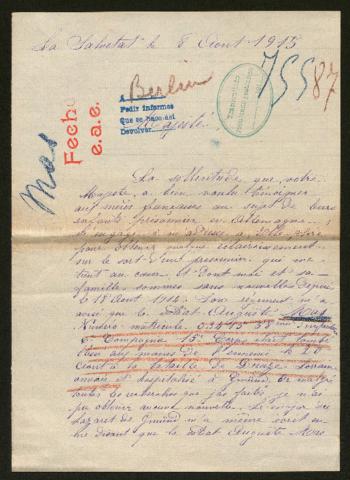 La Salvetat le 8 Aout 1915
75587
Berlin
A
Pedir informes
Que se haga así
Devolver
Majesté
Fecho
e.a.e.
Mas
La sollicitude que votre
Majesté a bien voulu témoigner
aux mères françaises au sujet de leurs
enfants prisonniers en Allemagne
m'engage à m'adresser à Elle
pour obtenir quelque éclaircissement
sur le sort d'un prisonnier qui me
tient au coeur et dont moi et sa
famille sommes sans nouvelles depuis
le 18 Aout 1914. Son régiment m'a
avisé que le soldat Auguste Mas
Numéro matricule 58me
Compagnie 15 Corps était tombé
aux mains de l'ennemi le 20
Aout à la bataille de
et hospitalisé à Gmünd malgré
toutes les recherches que j'ai faites je n'ai
pu obtenir aucune nouvelle. Le
Lazaret de Gmünd m'a même écrit
disant que le soldat Auguste Mas